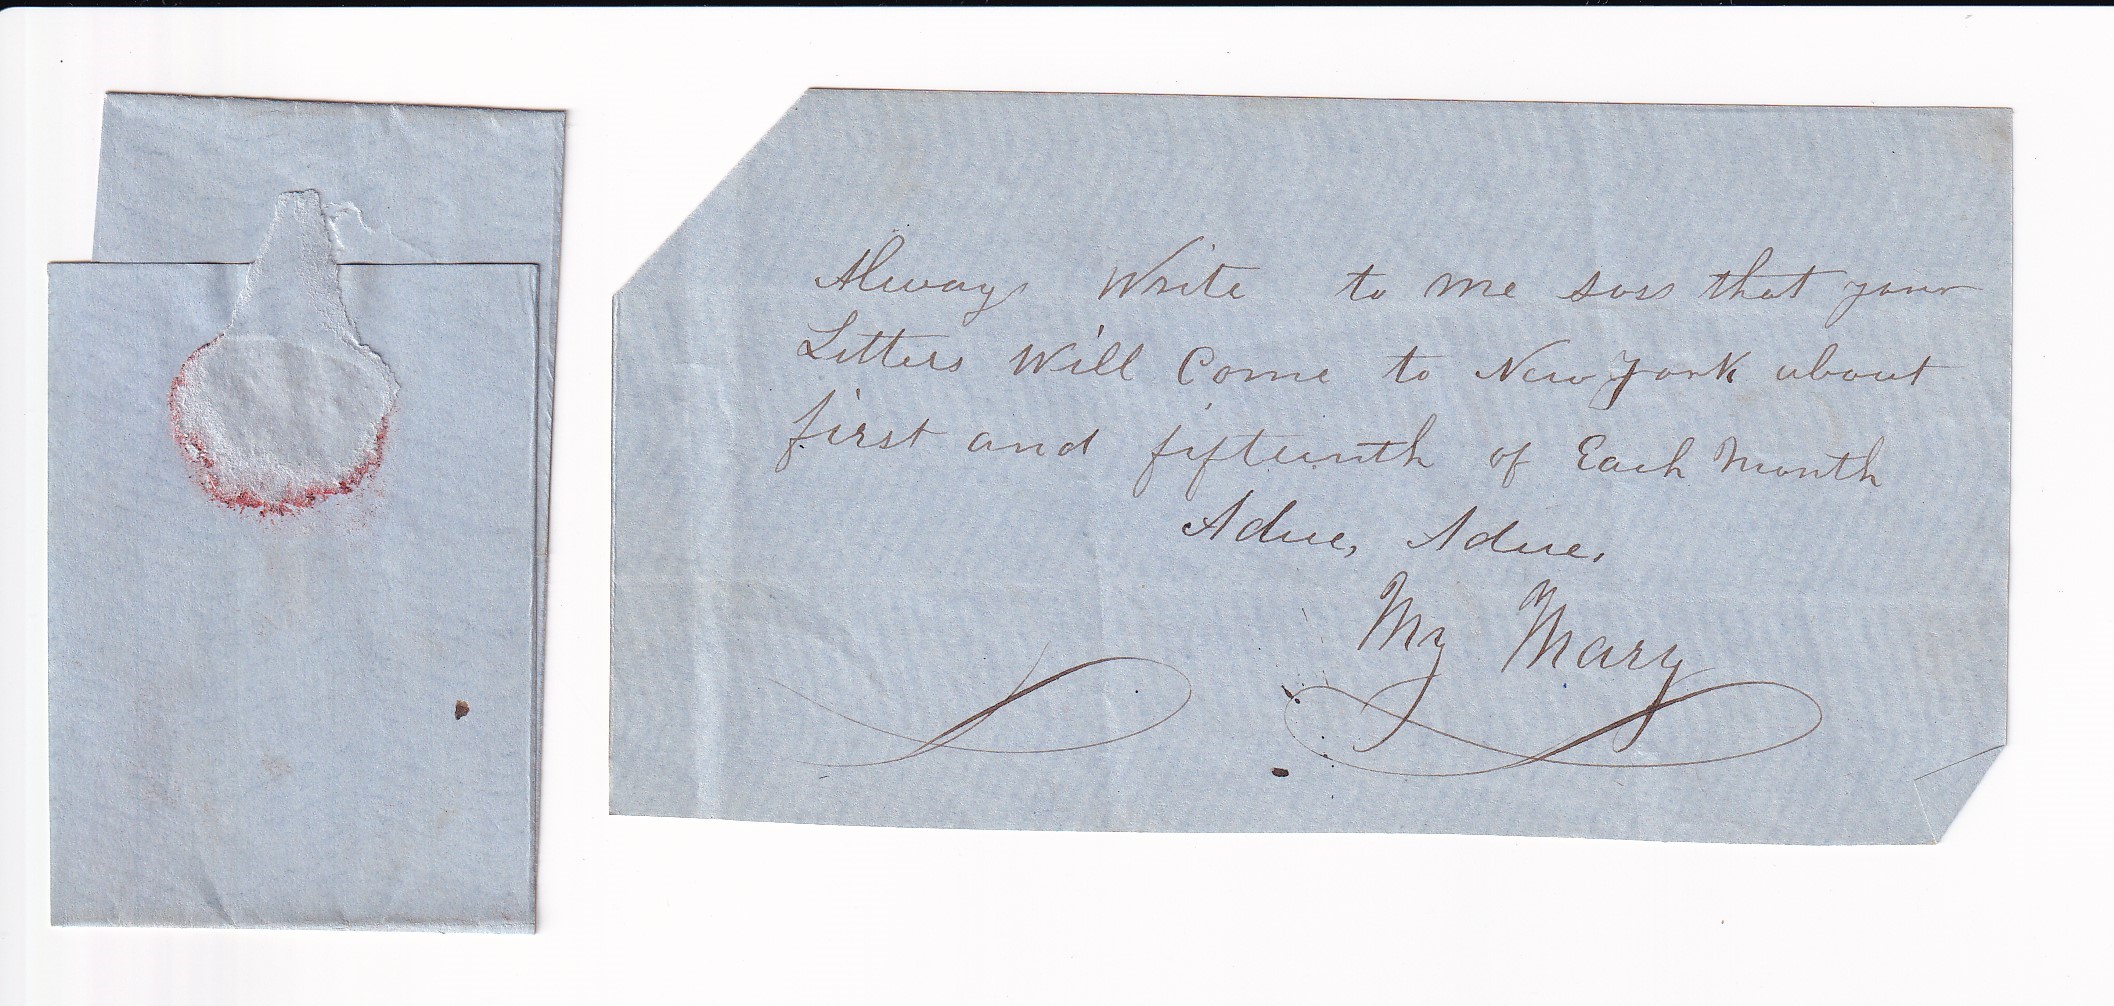 Always Write to me soss that your
Letters Will Come to New York about
first and fifteenth of Each Month
Adue, Adue,
My Mary